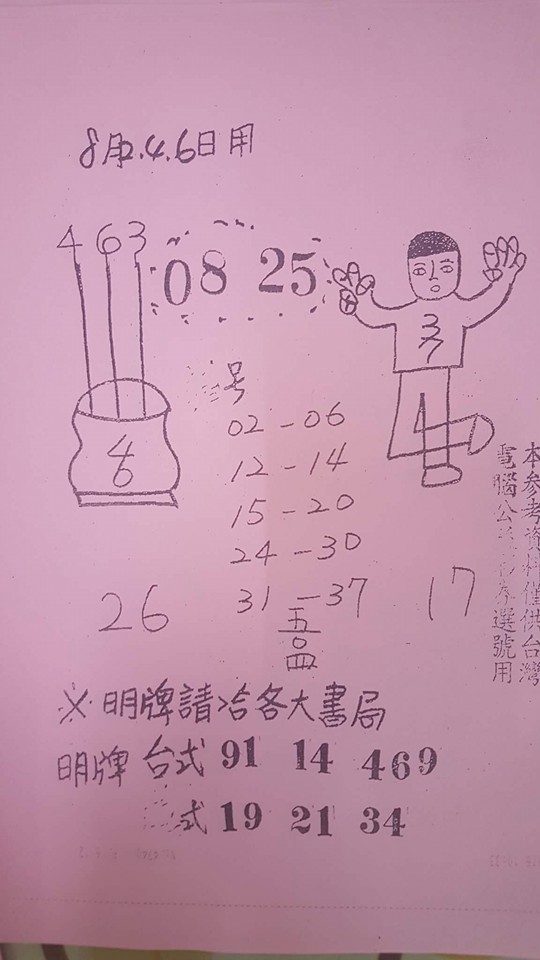 8月2.4.6日用
4 6 3
08 25
3
7
1
4
6
号
02-06
12-14
15-20
24-30
31-37
26
17
五
※明牌請洽各大書局
明牌 台式 91 14 469
式 19 21 34
本參考資料僅供台灣
電腦公益彩券選號用